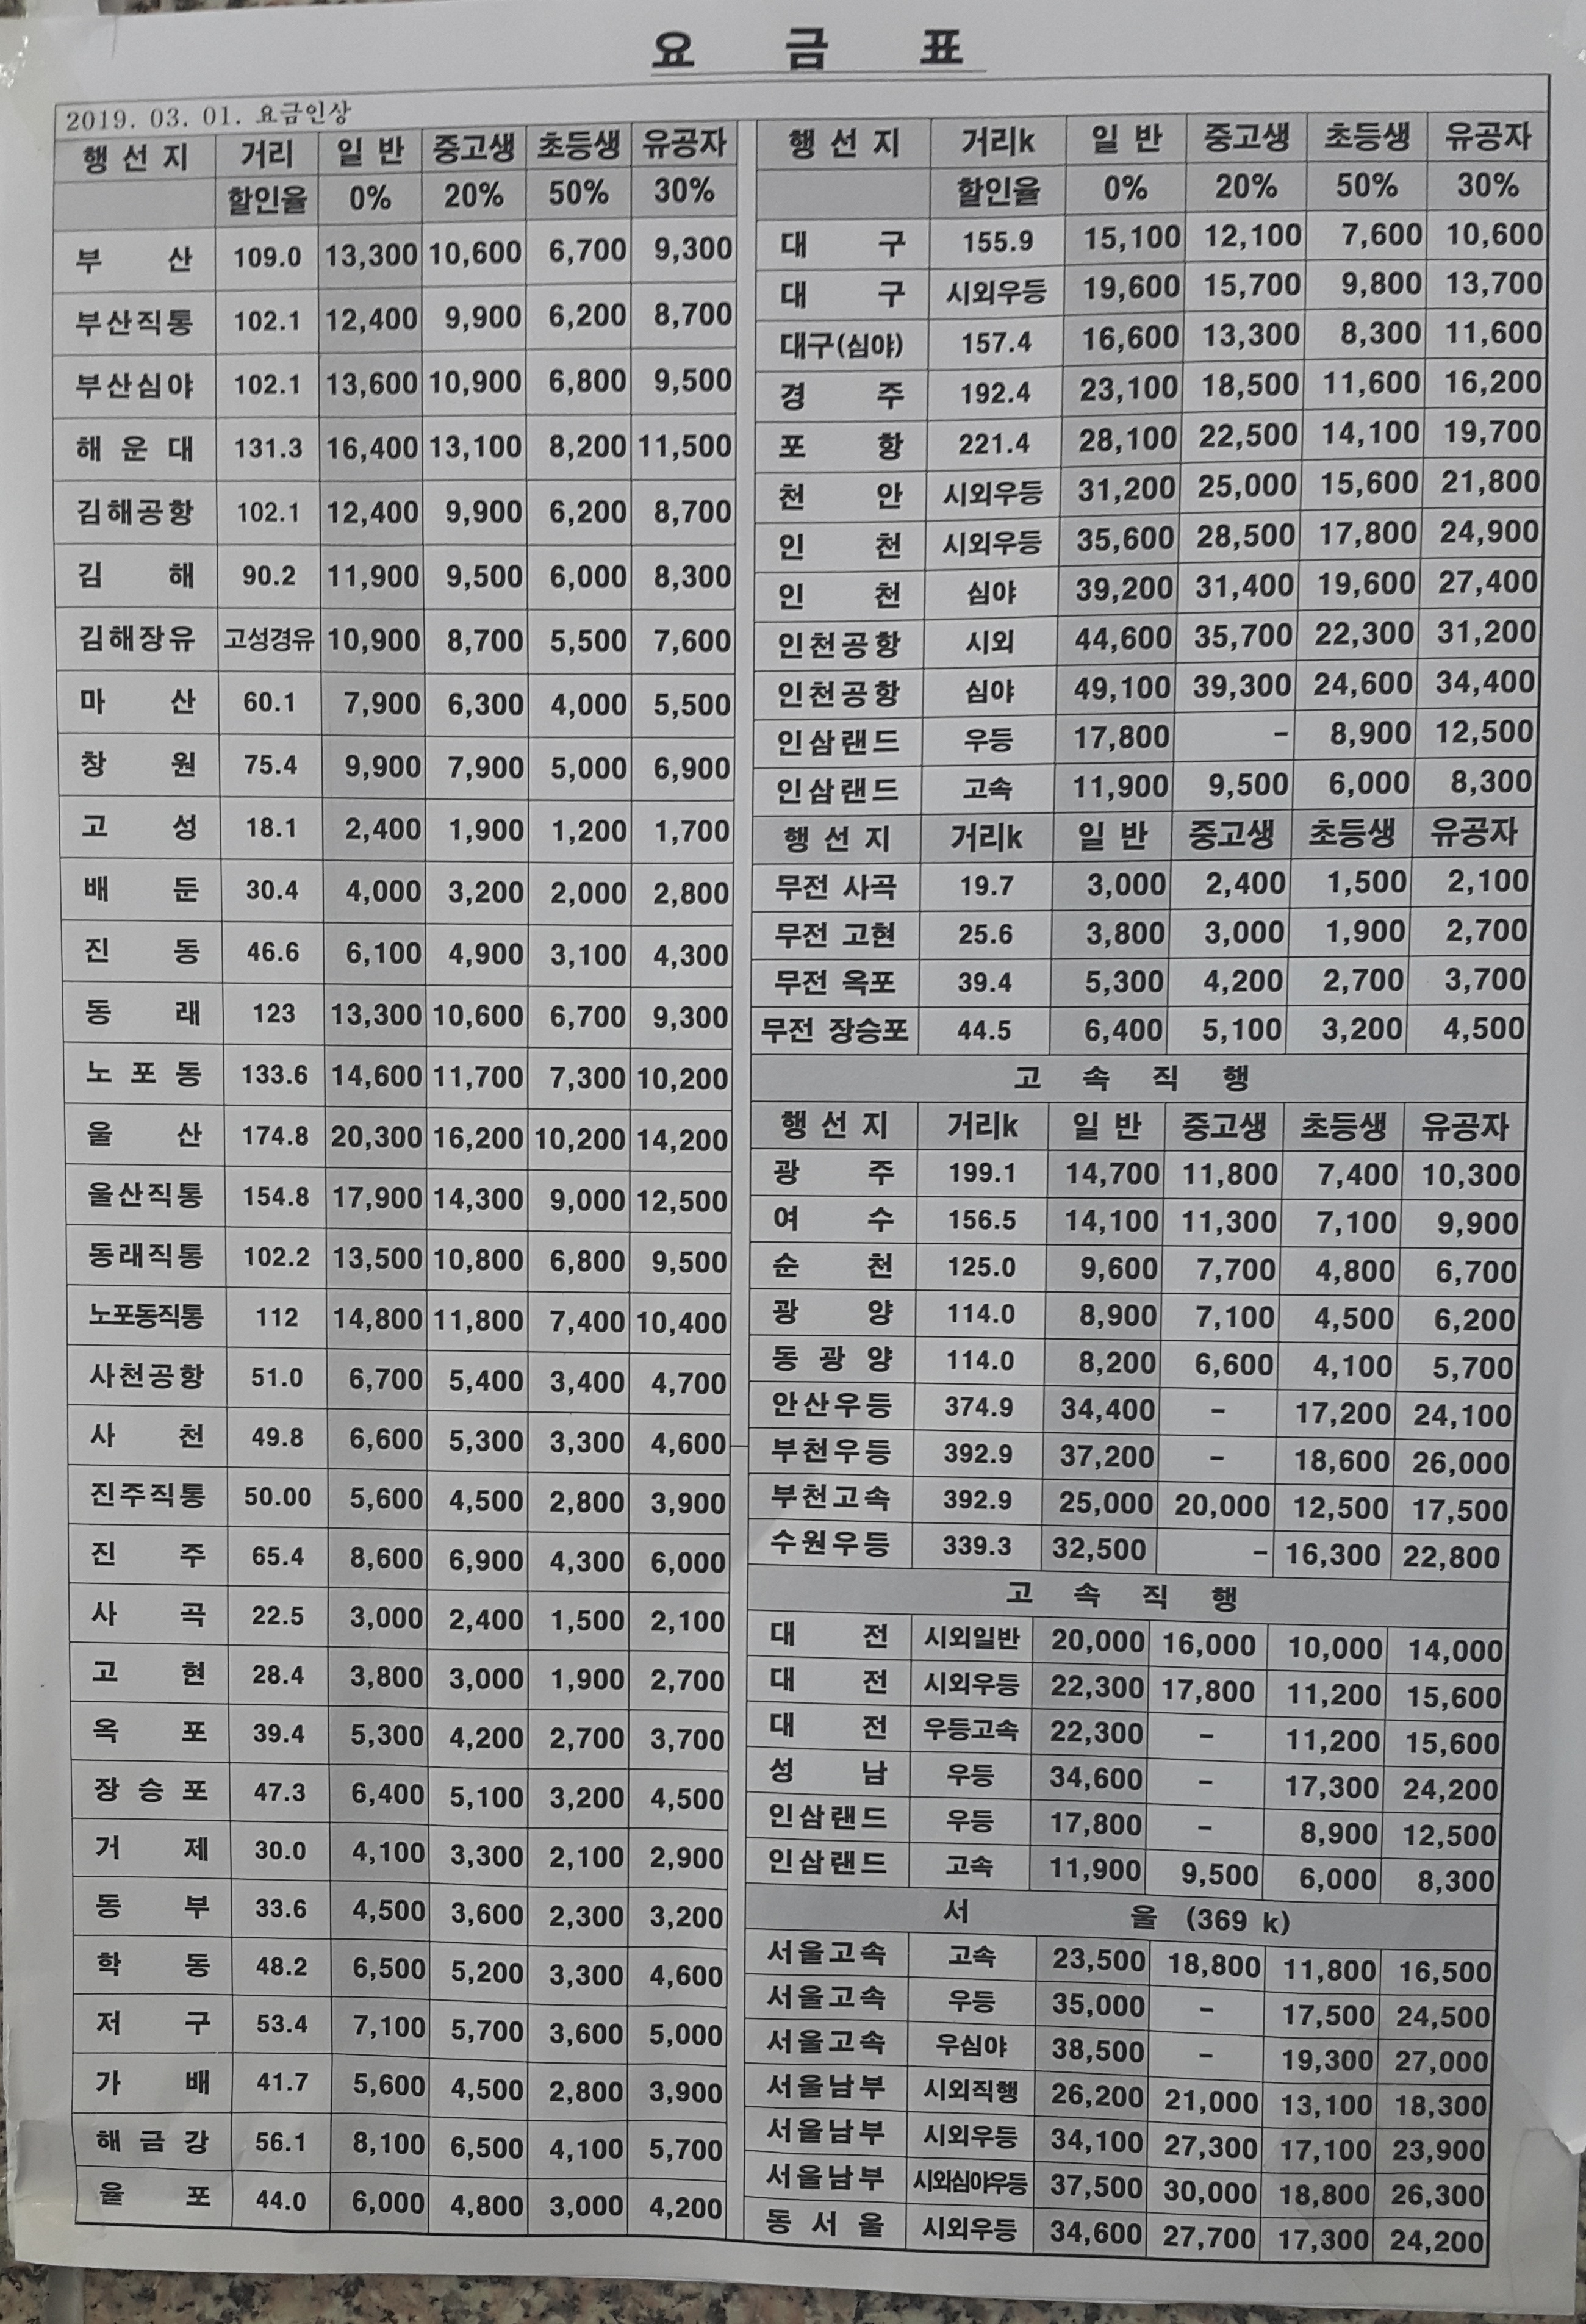 요 금 표
2019. 03. 01. 요금인상
행 선 지 거리 일 반 중고생 초등생 유공자
할인율 0% 20% 50% 30%
부 산 109.0 13,300 10,600 6,700 9,300
부산직통 102.1 12,400 9,900 6,200 8,700
부산심야 102.1 13,600 10,900 6,800 9,500
해 운 대 131.3 16,400 13,100 8,200 11,500
김해공항 102.1 12,400 9,900 6,200 8,700
김 해 90.2 11,900 9,500 6,000 8,300
김해장유 고성경유 10,900 8,700 5,500 7,600
마 산 60.1 7,900 6,300 4,000 5,500
창 원 75.4 9,900 7,900 5,000 6,900
고 성 18.1 2,400 1,900 1,200 1,700
배 둔 30.4 4,000 3,200 2,000 2,800
진 동 46.6 6,100 4,900 3,100 4,300
동 래 123 13,300 10,600 6,700 9,300
노 포 동 133.6 14,600 11,700 7,300 10,200
울 산 174.8 20,300 16,200 10,200 14,200
울산직통 154.8 17,900 14,300 9,000 12,500
동래직통 102.2 13,500 10,800 6,800 9,500
노포동직통 112 14,800 11,800 7,400 10,400
사천공항 51.0 6,700 5,400 3,400 4,700
사 천 49.8 6,600 5,300 3,300 4,600
진주직통 50.00 5,600 4,500 2,800 3,900
진 주 65.4 8,600 6,900 4,300 6,000
사 곡 22.5 3,000 2,400 1,500 2,100
고 현 28.4 3,800 3,000 1,900 2,700
옥 포 39.4 5,300 4,200 2,700 3,700
장 승 포 47.3 6,400 5,100 3,200 4,500
거 제 30.0 4,100 3,300 2,100 2,900
동 부 33.6 4,500 3,600 2,300 3,200
학 동 48.2 6,500 5,200 3,300 4,600
저 구 53.4 7,100 5,700 3,600 5,000
가 배 41.7 5,600 4,500 2,800 3,900
해 금 강 56.1 8,100 6,500 4,100 5,700
율 포 44.0 6,000 4,800 3,000 4,200
행 선 지 거리k 일 반 중고생 초등생 유공자
할인율 0% 20% 50% 30%
대 구 155.9 15,100 12,100 7,600 10,600
대 구 시외우등 19,600 15,700 9,800 13,700
대구(심야) 157.4 16,600 13,300 8,300 11,600
경 주 192.4 23,100 18,500 11,600 16,200
포 항 221.4 28,100 22,500 14,100 19,700
천 안 시외우등 31,200 25,000 15,600 21,800
인 천 시외우등 35,600 28,500 17,800 24,900
인 천 심야 39,200 31,400 19,600 27,400
인천공항 시외 44,600 35,700 22,300 31,200
인천공항 심야 49,100 39,300 24,600 34,400
인삼랜드 우등 17,800 - 8,900 12,500
인삼랜드 고속 11,900 9,500 6,000 8,300
행 선 지 거리k 일 반 중고생 초등생 유공자
무전 사곡 19.7 3,000 2,400 1,500 2,100
무전 고현 25.6 3,800 3,000 1,900 2,700
무전 옥포 39.4 5,300 4,200 2,700 3,700
무전 장승포 44.5 6,400 5,100 3,200 4,500
고 속 직 행
행 선 지 거리k 일 반 중고생 초등생 유공자
광 주 199.1 14,700 11,800 7,400 10,300
여 수 156.5 14,100 11,300 7,100 9,900
순 천 125.0 9,600 7,700 4,800 6,700
광 양 114.0 8,900 7,100 4,500 6,200
동 광 양 114.0 8,200 6,600 4,100 5,700
안산우등 374.9 34,400 - 17,200 24,100
부천우등 392.9 37,200 - 18,600 26,000
부천고속 392.9 25,000 20,000 12,500 17,500
수원우등 339.3 32,500 - 16,300 22,800
고 속 직 행
대 전 시외일반 20,000 16,000 10,000 14,000
대 전 시외우등 22,300 17,800 11,200 15,600
대 전 우등고속 22,300 - 11,200 15,600
성 남 우등 34,600 - 17,300 24,200
인삼랜드 우등 17,800 - 8,900 12,500
인삼랜드 고속 11,900 9,500 6,000 8,300
서 울 (369 k)
서울고속 고속 23,500 18,800 11,800 16,500
서울고속 우등 35,000 - 17,500 24,500
서울고속 우심야 38,500 - 19,300 27,000
서울남부 시외직행 26,200 21,000 13,100 18,300
서울남부 시외우등 34,100 27,300 17,100 23,900
서울남부 시외심야우등 37,500 30,000 18,800 26,300
동 서 울 시외우등 34,600 27,700 17,300 24,200